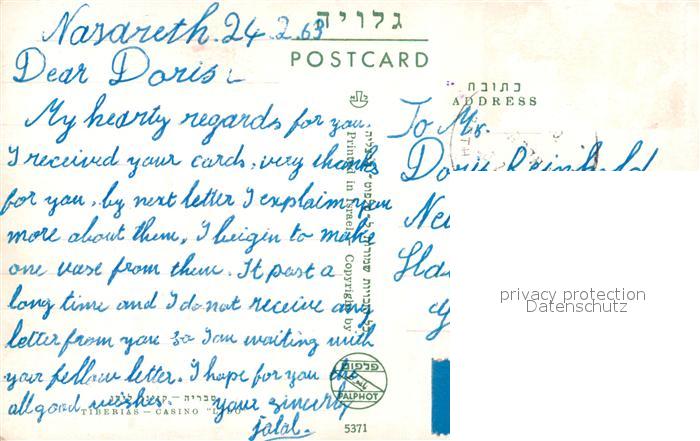 גלויה
POSTCARD
Nazareth. 24.2.63
Dear Doris:
כתובת
ADDRESS
My hearty regards for you.
I received your cards, very thanks
for you, by next letter I explaim you
more about them, I beigin to make
one vase from them. It past a
long time and I do not receive any
letter from you so I am waiting with
your fellow letter. I hope for you the
all good weshes. your sincerly
jalal.
To Mr.
Doris Reinhold
privacy protection
Datenschutz
Printed in Israel Copyright by
פלפוט
PALPHOT
5371
TIBERIAS — CASINO "LIDO"